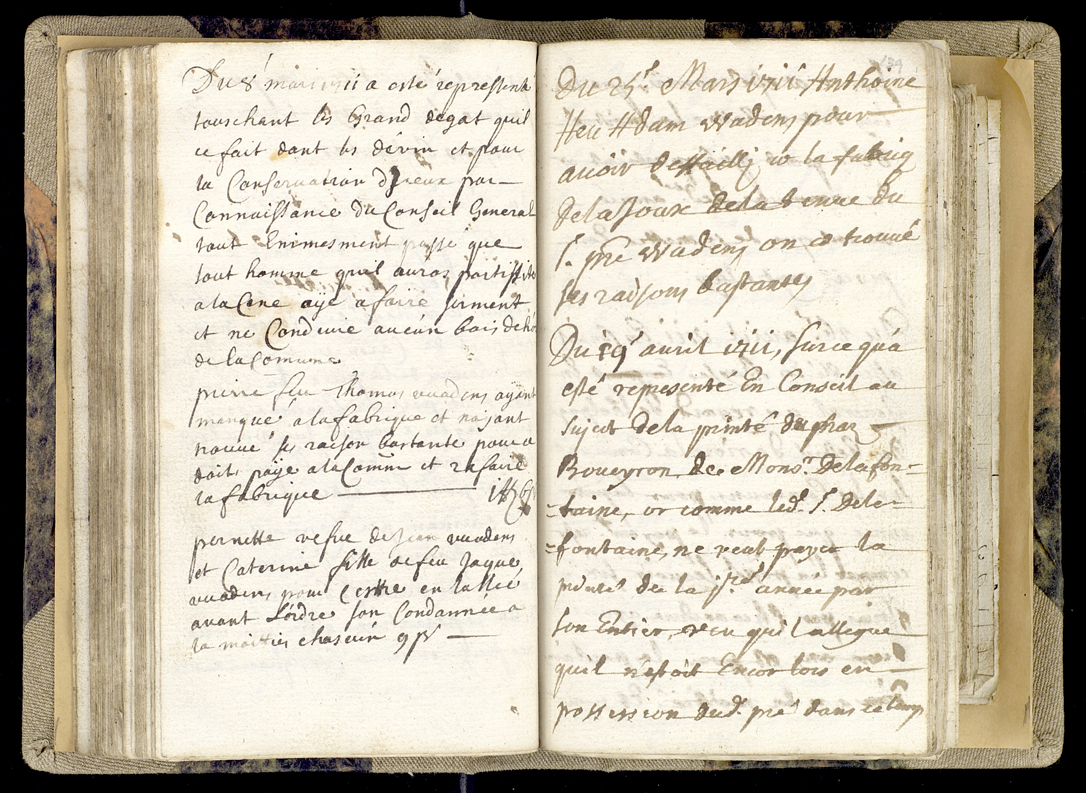 Du 8e mars 1711 a esté repressenté
touschant les Grand degat quil
ce fait dant les devin et pour
la Conservation dJceux par
Connaissance du Conseil General
tout Enimesment passé que
tout homme quil auras
a la Cene aÿe a faire serment
et ne Conduire aucun bois dehor
de la Comune
pierre feu Thomas wadens ayant
manque a la fabrique et najant
trouvé ses raison bastante pour a
doit payé a la Comun et refaire
la fabrique
pernette vefve de Jean wadens
et Caterine fille de feu Jaque
wadens pour estre en
avant Lordre son Condannée a
la moities chascun
189
Du 25e Mars 1711 Anthoine
feu Adam wadens pour
avoir deffailly a la fabriq
de la Joux de la tenue du
Sr. pre wadens on a trouvé
ses raisons bastantes
Du 19e avril 1711, surce qu'a
esté representé En Conseil au
sujet de la printé du praz
Boveyron de Monsr. Delafon-
=taine, or comme led. Sr. dela-
=fontaine, ne veut payer la
printé de la 1re année par
son Entier, veu qu'il allegue
quil n'estoit Encor lors en
possession dud. pré dans ce temps